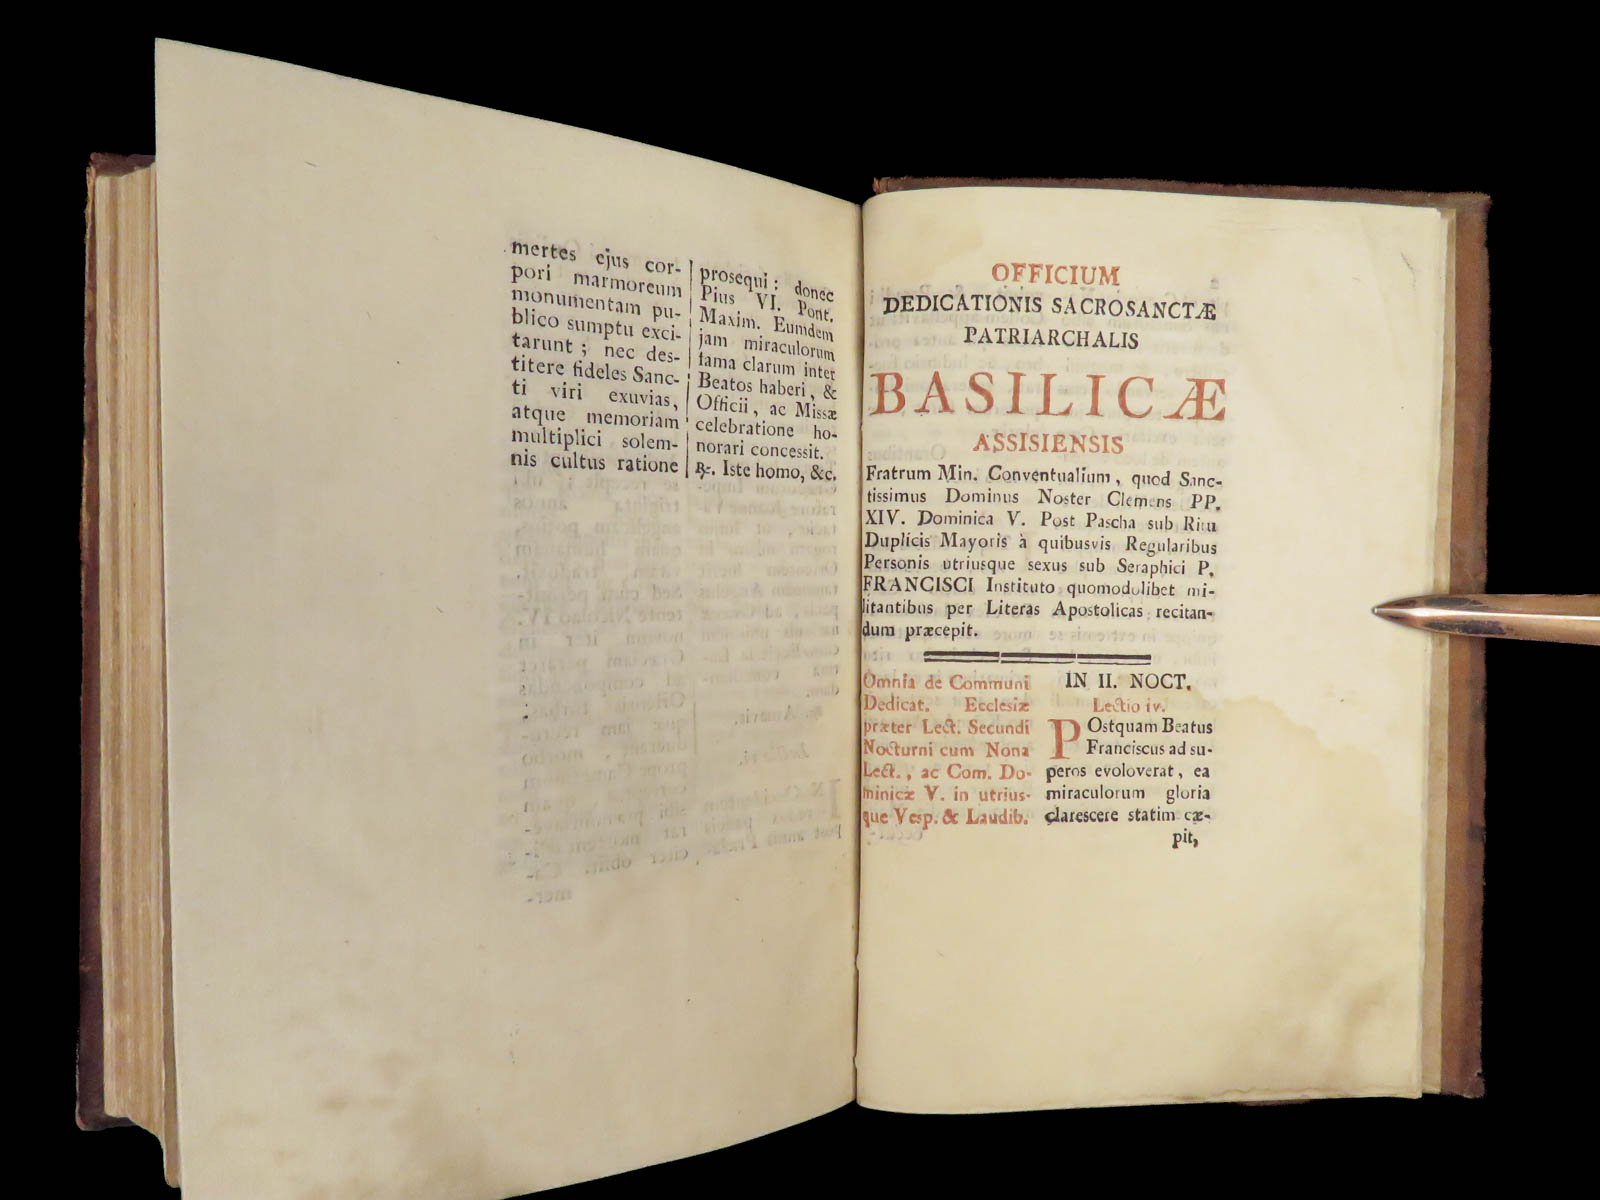 mertes ejus cor-
pori marmoreum
monumentam pu-
blico sumptu exci-
tarunt ; nec des-
titere fideles Sanc-
ti viri exuvias,
atque memoriam
multiplici solem-
nis cultus ratione
prosequi : donec
Pius VI. Pont.
Maxim. Eumdem
jam miraculorum
fama clarum inter
Beatos haberi, &
Officii, ac Missæ
celebratione ho-
norari concessit.
℟. Iste homo, &c.
OFFICIUM
DEDICATIONIS SACROSANCTÆ
PATRIARCHALIS
BASILICÆ
ASSISIENSIS
Fratrum Min. Conventualium, quod Sanc-
tissimus Dominus Noster Clemens PP.
XIV. Dominica V. Post Pascha sub Ritu
Duplicis Mayoris à quibusvis Regularibus
Personis utriusque sexus sub Seraphici P.
FRANCISCI Instituto quomodolibet mi-
litantibus per Literas Apostolicas recitan-
dum præcepit.
Omnia de Communi
Dedicat. Ecclesiæ
præter Lect. Secundi
Nocturni cum Nona
Lect., ac Com. Do-
minicæ V. in utrius-
que Vesp. & Laudib.
IN II. NOCT.
Lectio iv.
POstquam Beatus
Franciscus ad su-
peros evoloverat, ea
miraculorum gloria
clarescere statim cæ-
pit,